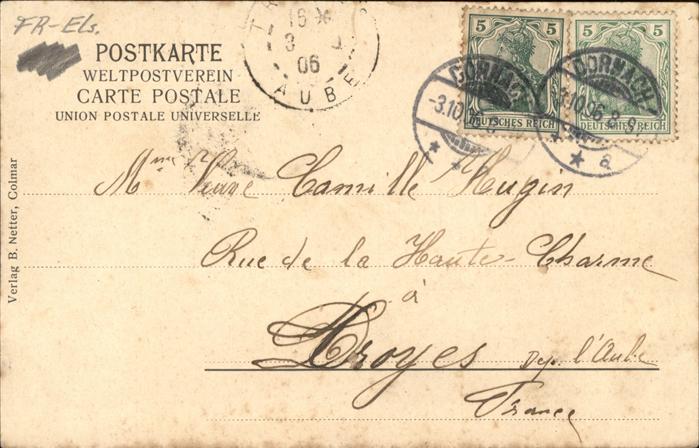 FR-Els.
POSTKARTE
WELTPOSTVEREIN
CARTE POSTALE
UNION POSTALE UNIVERSELLE
AUBE
06
5 5
5 5
DORNACH
-3.10.
DEUTSCHES REICH
DORNACH
3.10.06. 8-9
DEUTSCHES REICH
a
Mme Veuve Camille Hugin
Rue de la Haute-Charme
à
Troyes Dep. l'Aube
France
Verlag B. Netter, Colmar